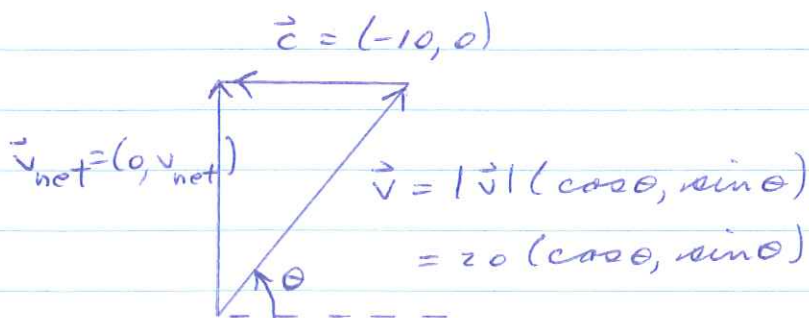 c⃗ = (-10, 0)
v⃗net = (0, vnet)
v⃗ = |v⃗| (cosθ, sinθ)
= 20 (cosθ, sinθ)
θ